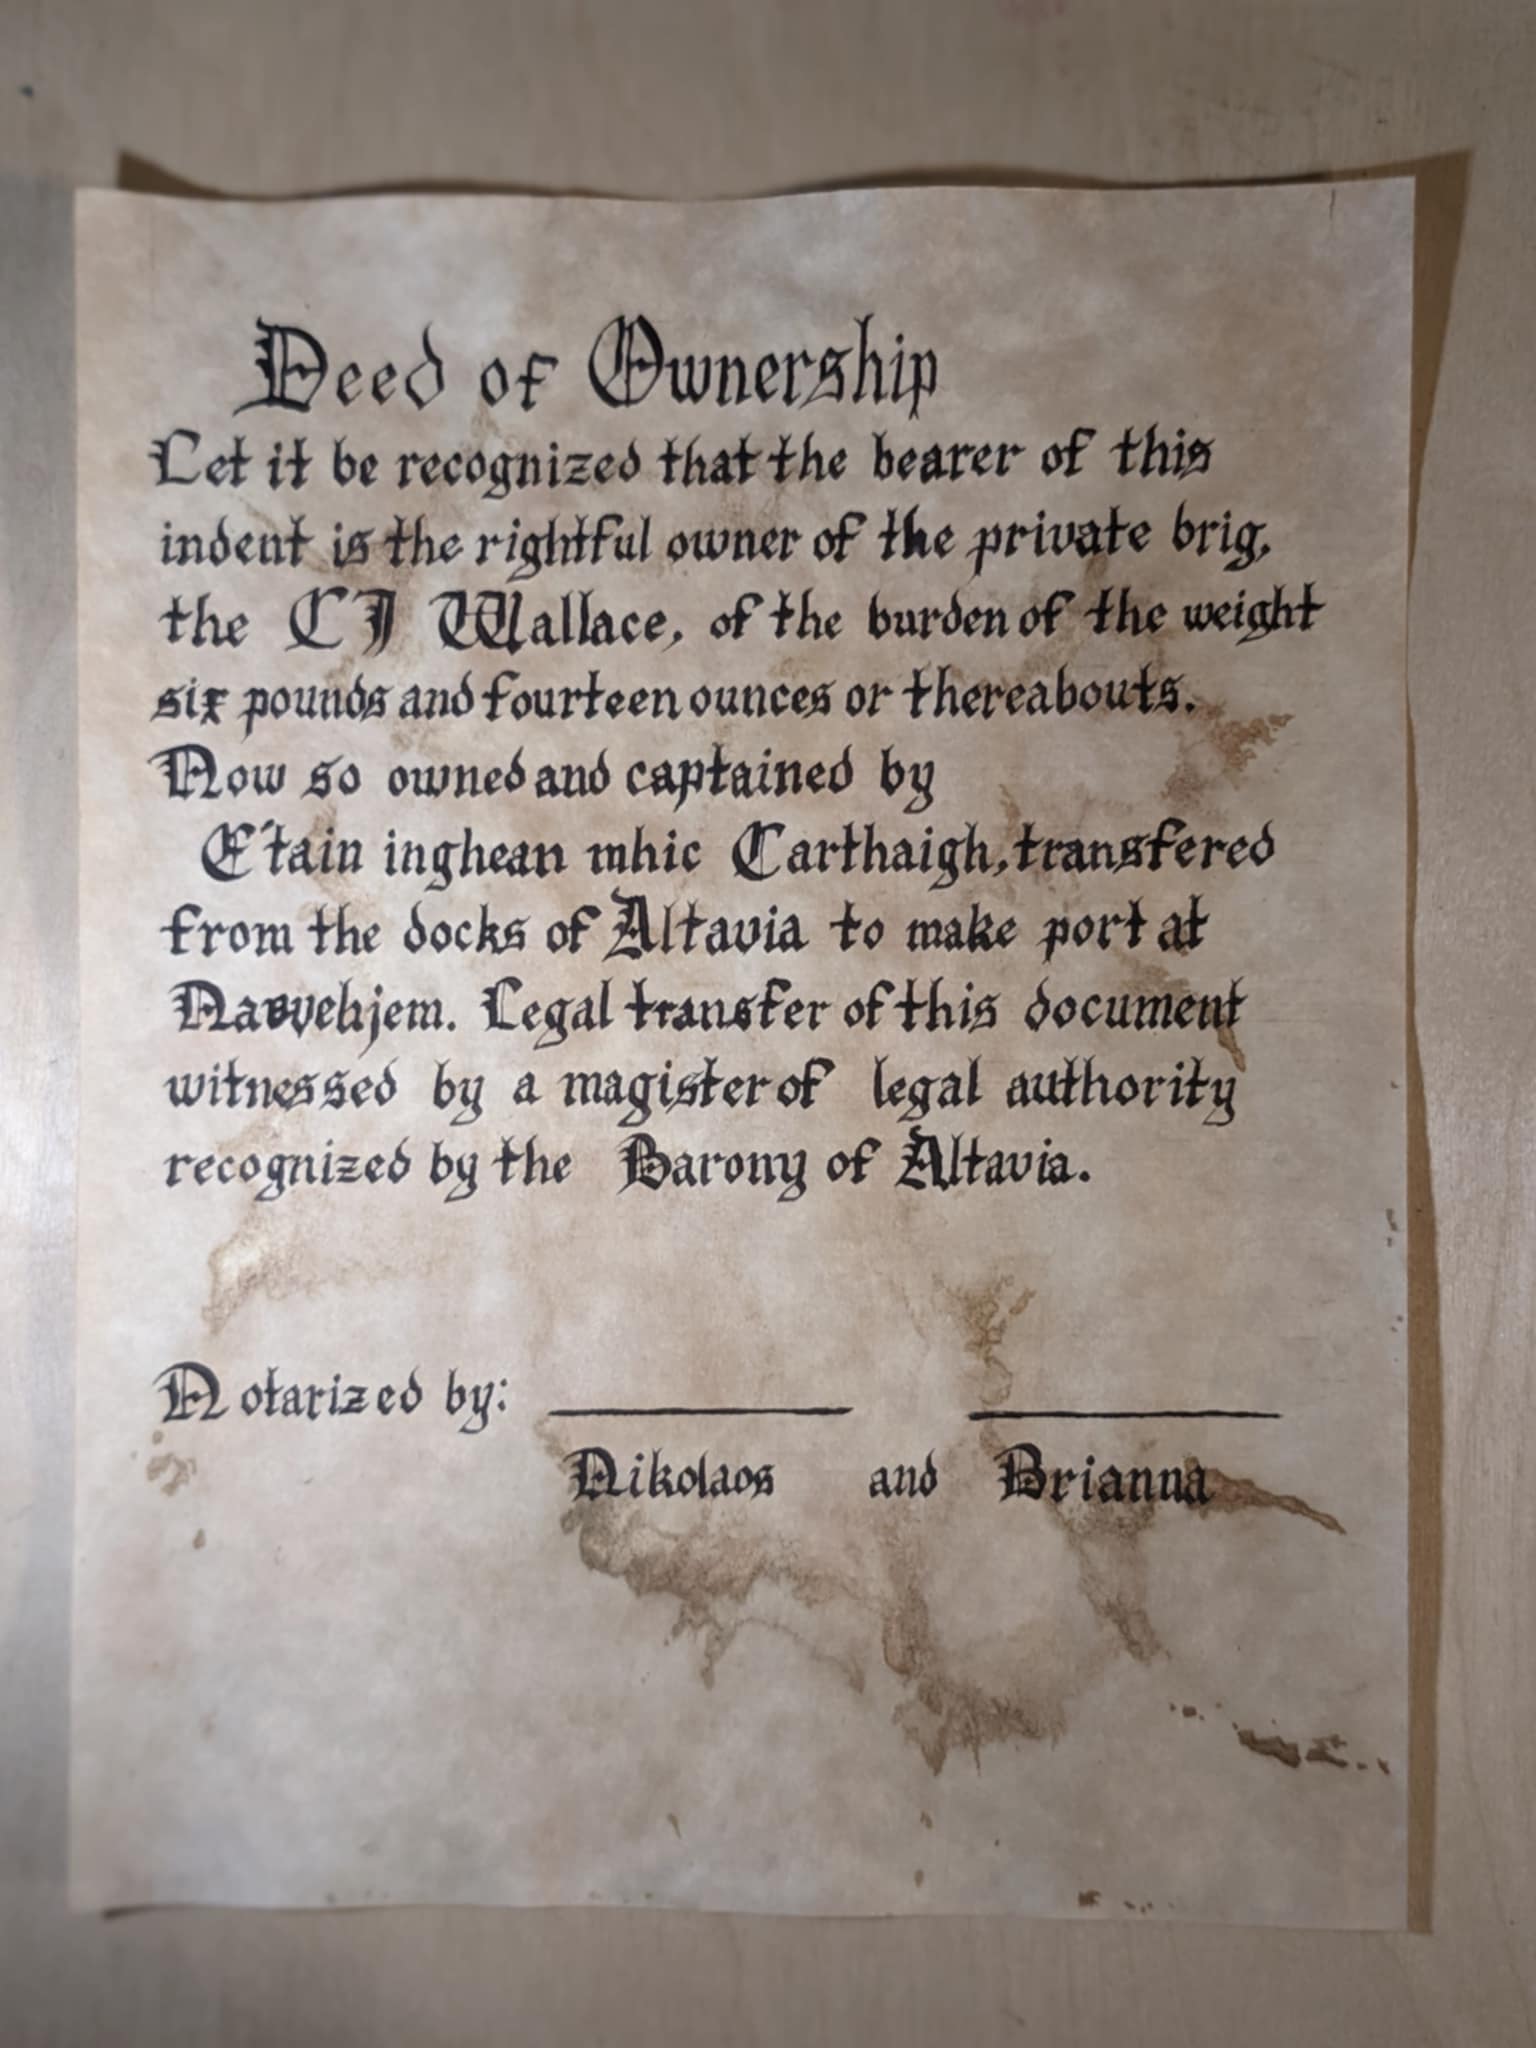 Deed of Ownership
Let it be recognized that the bearer of this
indent is the rightful owner of the private brig,
the CJ Wallace, of the burden of the weight
six pounds and fourteen ounces or thereabouts.
Now so owned and captained by
E'tain inghean mhic Carthaigh, transfered
from the docks of Altavia to make port at
Legal transfer of this document
witnessed by a magister of legal authority
recognized by the Barony of Altavia.
Notarized by:
Nikolaos and Brianna